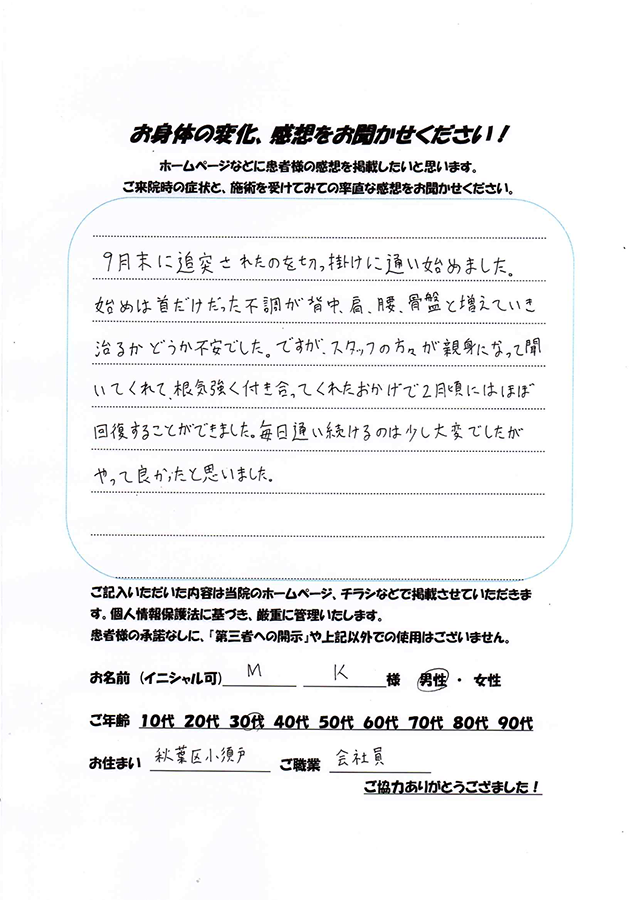 お身体の変化、感想をお聞かせください！
ホームページなどに患者様の感想を掲載したいと思います。
ご来院時の症状と、施術を受けてみての率直な感想をお聞かせください。
9月末に追突されたのを切っ掛けに通い始めました。
始めは首だけだった不調が背中、肩、腰、骨盤と増えていき
治るかどうか不安でした。ですが、スタッフの方々が親身になって聞
いてくれて、根気強く付き合ってくれたおかげで2月頃にはほぼ
回復することができました。毎日通い続けるのは少し大変でしたが
やって良かったと思いました。
ご記入いただいた内容は当院のホームページ、チラシなどで掲載させていただきま
す。個人情報保護法に基づき、厳重に管理いたします。
患者様の承諾なしに、「第三者への開示」や上記以外での使用はございません。
お名前（イニシャル可） M K 様 男性・女性
ご年齢 10代 20代 30代 40代 50代 60代 70代 80代 90代
お住まい 秋葉区小須戸 ご職業 会社員
ご協力ありがとうござました！